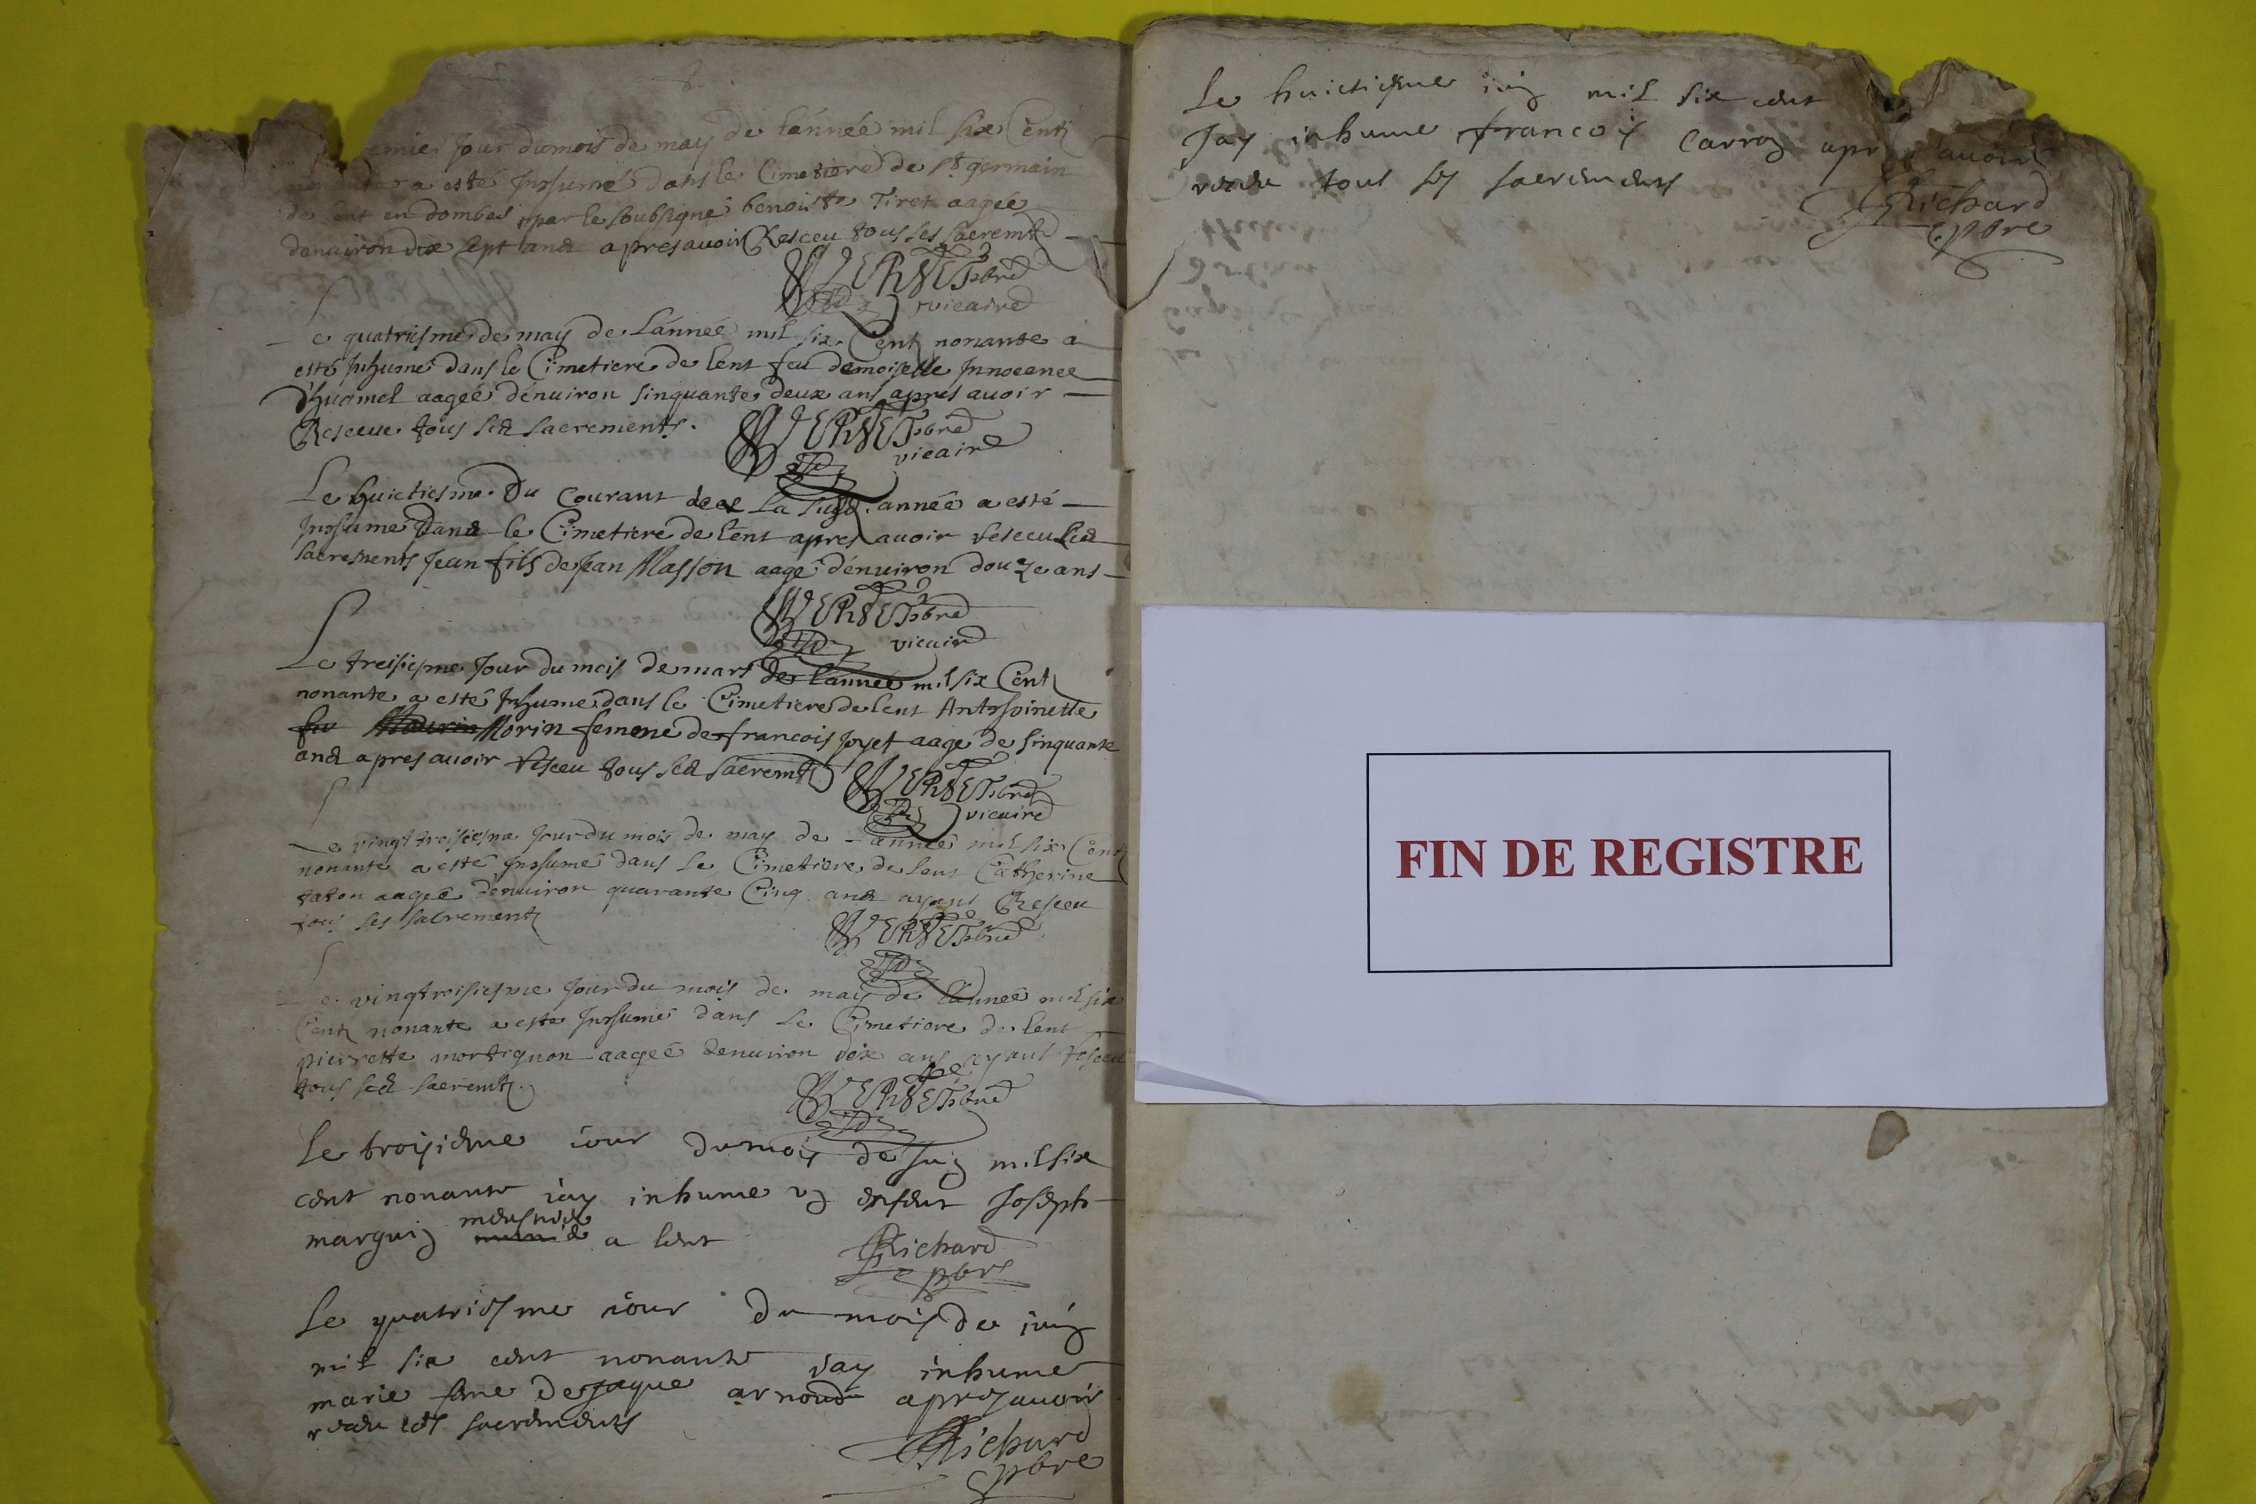 emier Jour du mois de may de l'année mil six Cents
a esté Inhumé dans le Cimetiere de st germain
de lent en dombes par le soubsigné benoiste Tiret aagée
denuiron dix sept ans apres auoir Resceu tous ses sacremts
VERNET pbre
vicaire
Le quatriesme de may de l'année mil six Cents nonante a
esté Inhumé dans le Cimetiere de lent feu demoiselle Innocence
aagée dénuiron sinquante deux ans apres auoir
Resceue tous ses sacrements.
VERNET pbre
vicaire
Le huictiesme du Courant de la susd. année a esté
Inhumé dans le Cimetiere de lent apres auoir resceu ses
sacrements Jean fils de Jean Masson aagé dénuiron douze ans
VERNET pbre
vicaire
Le treisiesme Jour du mois de mars de l'année mil six Cents
nonante a esté Inhumé dans le Cimetiere de lent Anthoinette
Morin femme de francois Joyet aage de sinquante
ans apres auoir resceu tous ses sacremts
VERNET pbre
vicaire
Le vingt troisiesme Jour du mois de may de l'année mil six Cents
nonante a esté Inhumé dans le Cimetiere de lent Catherine
taton aagée dénuiron quarante Cinq ans ayant Resceu
tous ses sacrements
VERNET pbre
Le vingtroisiesme Jour du mois de may de l'année mil six
Cents nonante a esté Inhumé dans le Cimetiere de lent
pierrette mortignon aagée denuiron dix ans ayant resceu
tous ses sacremts.
VERNET pbre
Le troisieme iour du mois de Juin mil six
cent nonante iay inhume un enfent Joseph
marguin a lent
Richard
pbre
Le quatriesme iour du mois de iuin
mil six cent nonante iay inhume
marie feme de Jaque arnoud apres auoir
receu les sacrements
Richard
pbre
Le huictiesme iuin mil six cent
Jay inhume francois Carron apres auoir
receu tous ses sacrements
Richard
pbre
FIN DE REGISTRE